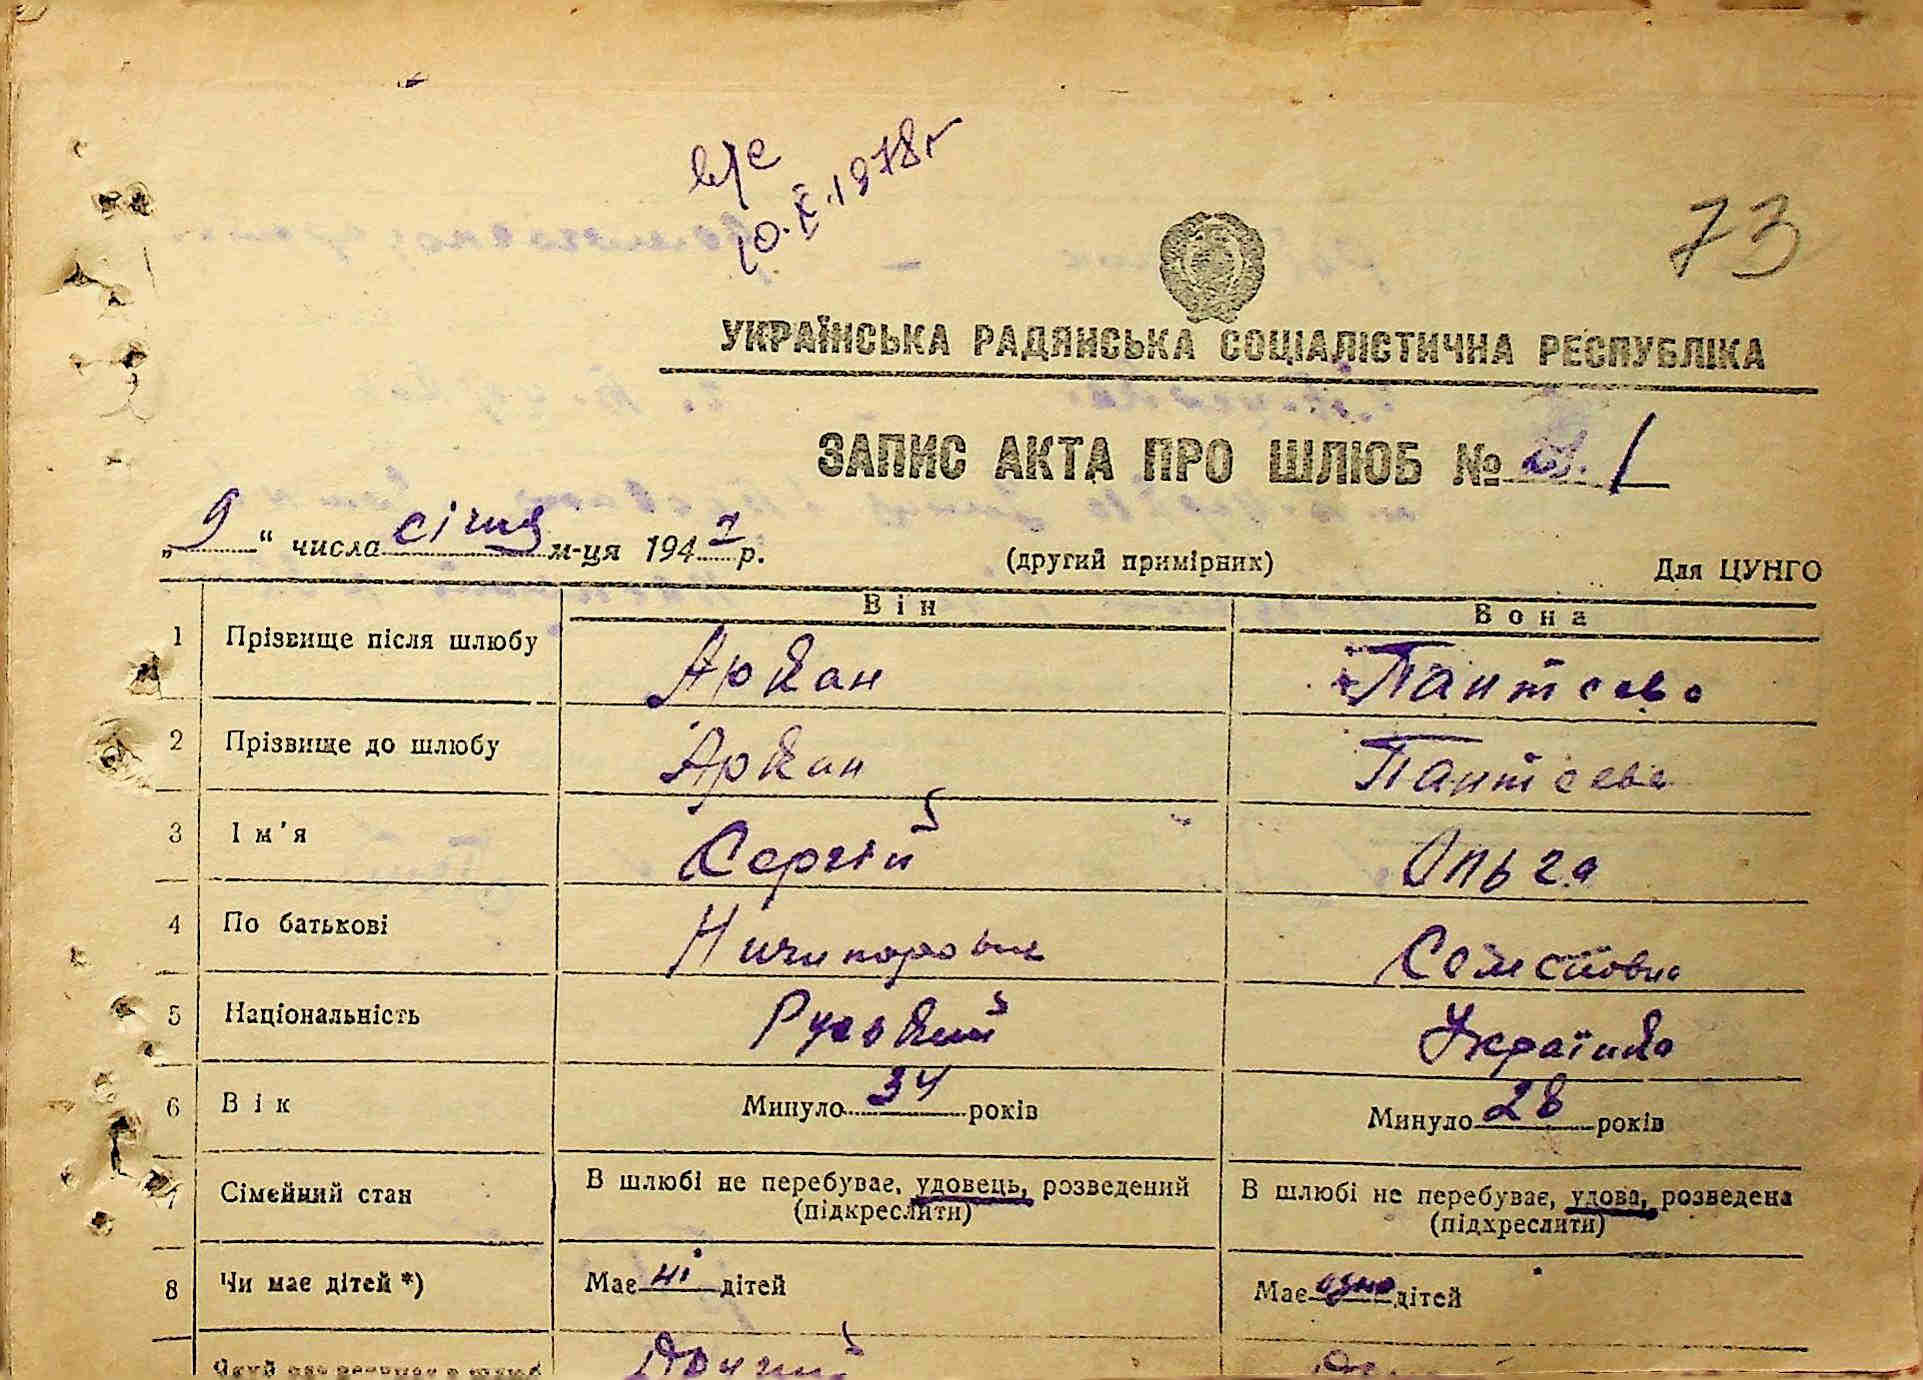 в/с
10.X.1978г
73
УКРАЇНСЬКА РАДЯНСЬКА СОЦІАЛІСТИЧНА РЕСПУБЛІКА
ЗАПИС АКТА ПРО ШЛЮБ № 1
„9“ числа січня м-ця 1947 р. (другий примірник) Для ЦУНГО
Він Вона
1 Прізвище після шлюбу Аркан Пантєєва
2 Прізвище до шлюбу Аркан Пантєєва
3 Ім'я Сергій Ольга
4 По батькові Ничипорович
5 Національність Руський Українка
6 Вік Минуло 34 років Минуло 28 років
7 Сімейний стан В шлюбі не перебуває, удовець, розведений В шлюбі не перебуває, удова, розведена
(підкреслити) (підкреслити)
8 Чи має дітей *) Має ні дітей Має одно дітей